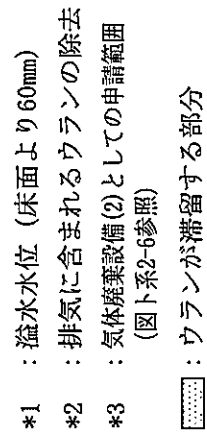 *1 ：溢水水位（床面より60mm）
*2 ：排気に含まれるウランの除去
*3 ：気体廃棄設備(2)としての申請範囲
（図ト系2-6参照）
：ウランが滞留する部分